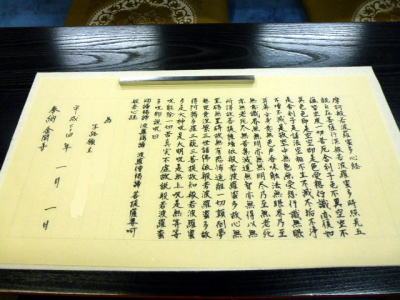 摩訶般若波羅蜜多心経
観自在菩薩行深般若波羅蜜多時照見五
蘊皆空度一切苦厄舎利子色不異空空不
異色色即是空空即是色受想行識亦復如
是舎利子是諸法空相不生不滅不垢不浄
不増不減是故空中無色無受想行識無眼
耳鼻舌身意無色声香味触法無眼界乃至
無意識界無無明亦無無明尽乃至無老死
亦無老死尽無苦集滅道無智亦無得以無
所得故菩提薩埵依般若波羅蜜多故心無
罣礙無罣礙故無有恐怖遠離一切顛倒夢
想究竟涅槃三世諸仏依般若波羅蜜多故
得阿耨多羅三藐三菩提故知般若波羅蜜
多是大神呪是大明呪是無上呪是無等等
呪能除一切苦真実不虚故説般若波羅蜜
多呪即説呪曰
羯諦羯諦 波羅羯諦 波羅僧羯諦 菩提薩婆訶
般若心経
為
願主
平成二十四年 月 一日
奉納 金閣寺